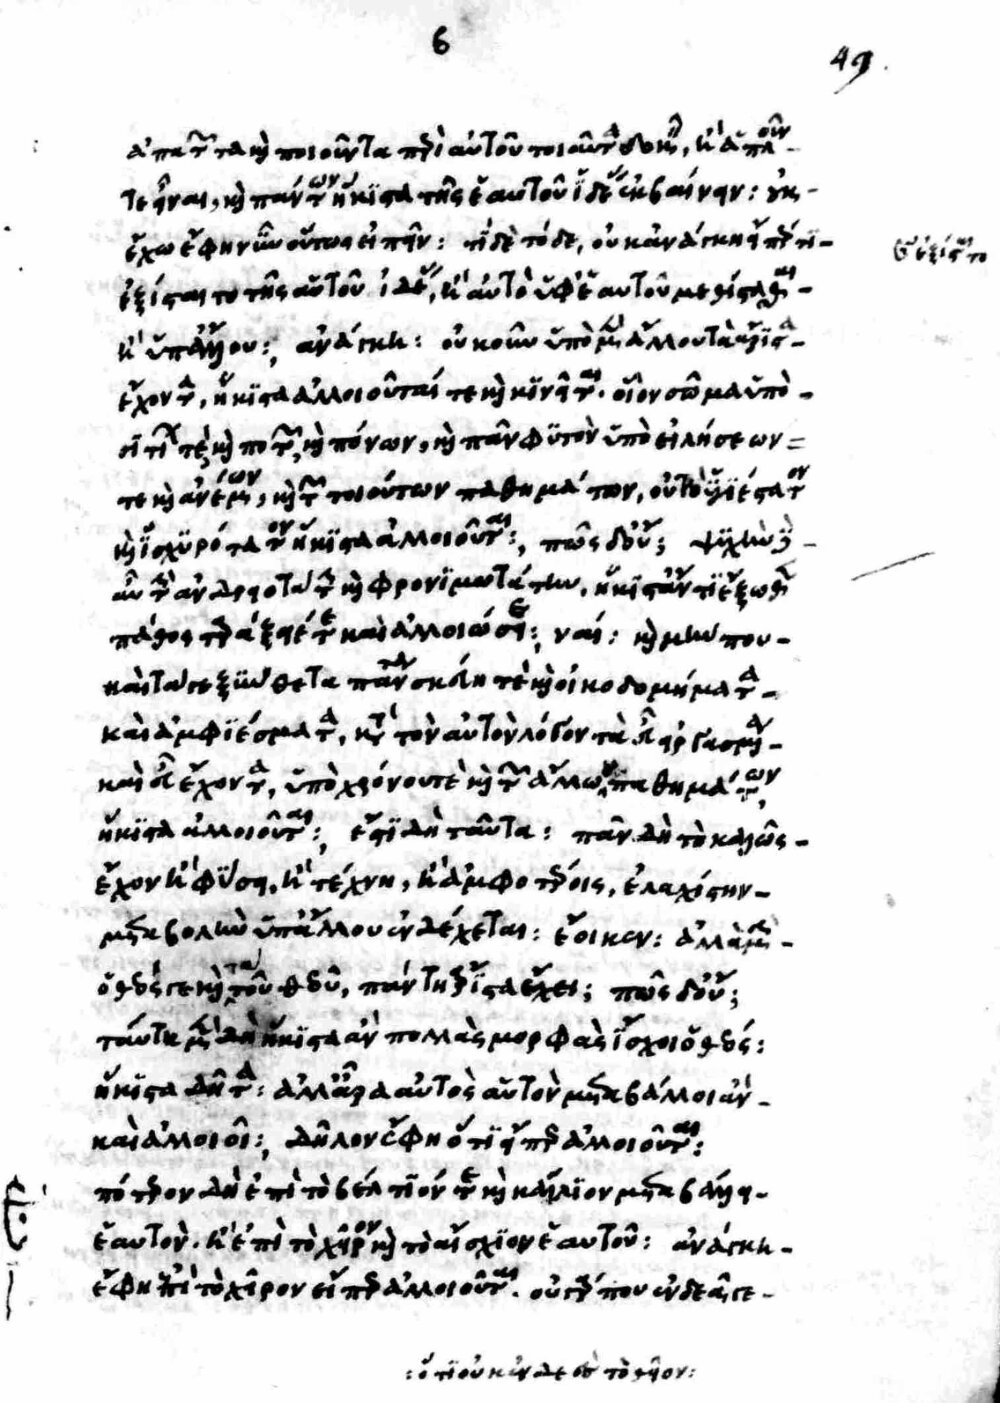 6
49
ἀπατῶντα καὶ ποιοῦντα περὶ αὐτοῦ τοιαῦτα δοκεῖν, ἢ ἁπλοῦν
τε εἶναι, καὶ πάντων ἥκιστα τῆς ἑαυτοῦ ἰδέας ἐκβαίνειν: οὐκ
ἔχω ἔφη νῦν οὕτως εἰπεῖν: τί δὲ τόδε, οὐκ ἀνάγκη εἴπερ τι
ἐξίσταιτο τῆς αὑτοῦ ἰδέας, ἢ αὐτὸ ὑφ' ἑαυτοῦ μεθίστασθαι
ἢ ὑπ' ἄλλου; ἀνάγκη: οὐκοῦν ὑπὸ μὲν ἄλλου τὰ ἄριστα
ἔχοντα, ἥκιστα ἀλλοιοῦταί τε καὶ κινεῖται. οἷον σῶμα ὑπὸ
σιτίων τε καὶ ποτῶν καὶ πόνων, καὶ πᾶν φυτὸν ὑπὸ εἱλήσεων
τε καὶ ἀνέμων, καὶ τῶν τοιούτων παθημάτων, οὐ τὸ ὑγιέστατον
καὶ ἰσχυρότατον ἥκιστα ἀλλοιοῦται; πῶς δ' οὔ; ψυχὴν δὲ
οὐ τὴν ἀνδρειοτάτην καὶ φρονιμωτάτην, ἥκιστ' ἄν τι ἔξωθεν
πάθος ταράξειέ τε καὶ ἀλλοιώσειε; ναί: καὶ μήν που
καὶ τά γε ξύνθετα πάντα σκεύη τε καὶ οἰκοδομήματα
καὶ ἀμφιέσματα, κατὰ τὸν αὐτὸν λόγον τὰ εὖ εἰργασμένα
καὶ εὖ ἔχοντα, ὑπὸ χρόνου τε καὶ τῶν ἄλλων παθημάτων
ἥκιστα ἀλλοιοῦται; ἔστι δὴ ταῦτα: πᾶν δὴ τὸ καλῶς
ἔχον ἢ φύσει, ἢ τέχνῃ, ἢ ἀμφοτέροις, ἐλαχίστην
μεταβολὴν ὑπ' ἄλλου ἐνδέχεται: ἔοικεν: ἀλλὰ μὴν
ὁ θεός γε καὶ τὰ τοῦ θεοῦ, πάντῃ ἄριστα ἔχει; πῶς δ' οὔ;
ταύτῃ μὲν δὴ ἥκιστα ἂν πολλὰς μορφὰς ἴσχοι ὁ θεός:
ἥκιστα δῆτα: ἀλλ' ἆρα αὐτὸς αὑτὸν μεταβάλλοι ἂν
καὶ ἀλλοιοῖ; δῆλον ἔφη ὅτι εἴπερ ἀλλοιοῦται:
πότερον δὴ ἐπὶ τὸ βέλτιόν τε καὶ κάλλιον μεταβάλλει
ἑαυτὸν. ἢ ἐπὶ τὸ χεῖρον καὶ τὸ αἴσχιον ἑαυτοῦ: ἀνάγκη
ἔφη ἐπὶ τὸ χεῖρον εἴπερ ἀλλοιοῦται. οὐ γάρ που ἐνδεᾶ γε